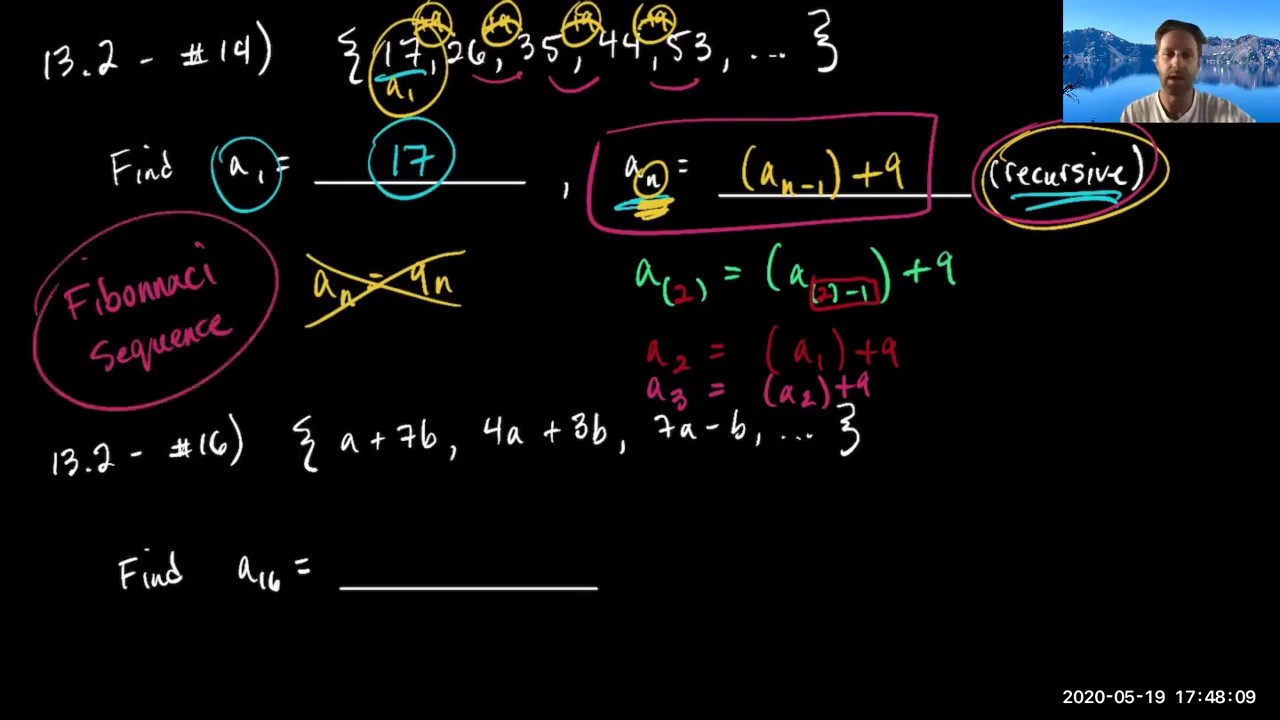 13.2 - #14) { 17, 26, 35, 44, 53, ... }
+9 +9 +9 +9
a₁
Find a₁ = 17 , aₙ = (aₙ₋₁) + 9 (recursive)
Fibonnaci
Sequence
aₙ = 9n
a₍₂₎ = (a₍₂₎₋₁) + 9
a₂ = (a₁) + 9
a₃ = (a₂) + 9
13.2 - #16) { a + 7b, 4a + 3b, 7a - b, ... }
Find a₁₆ =
2020-05-19 17:48:09